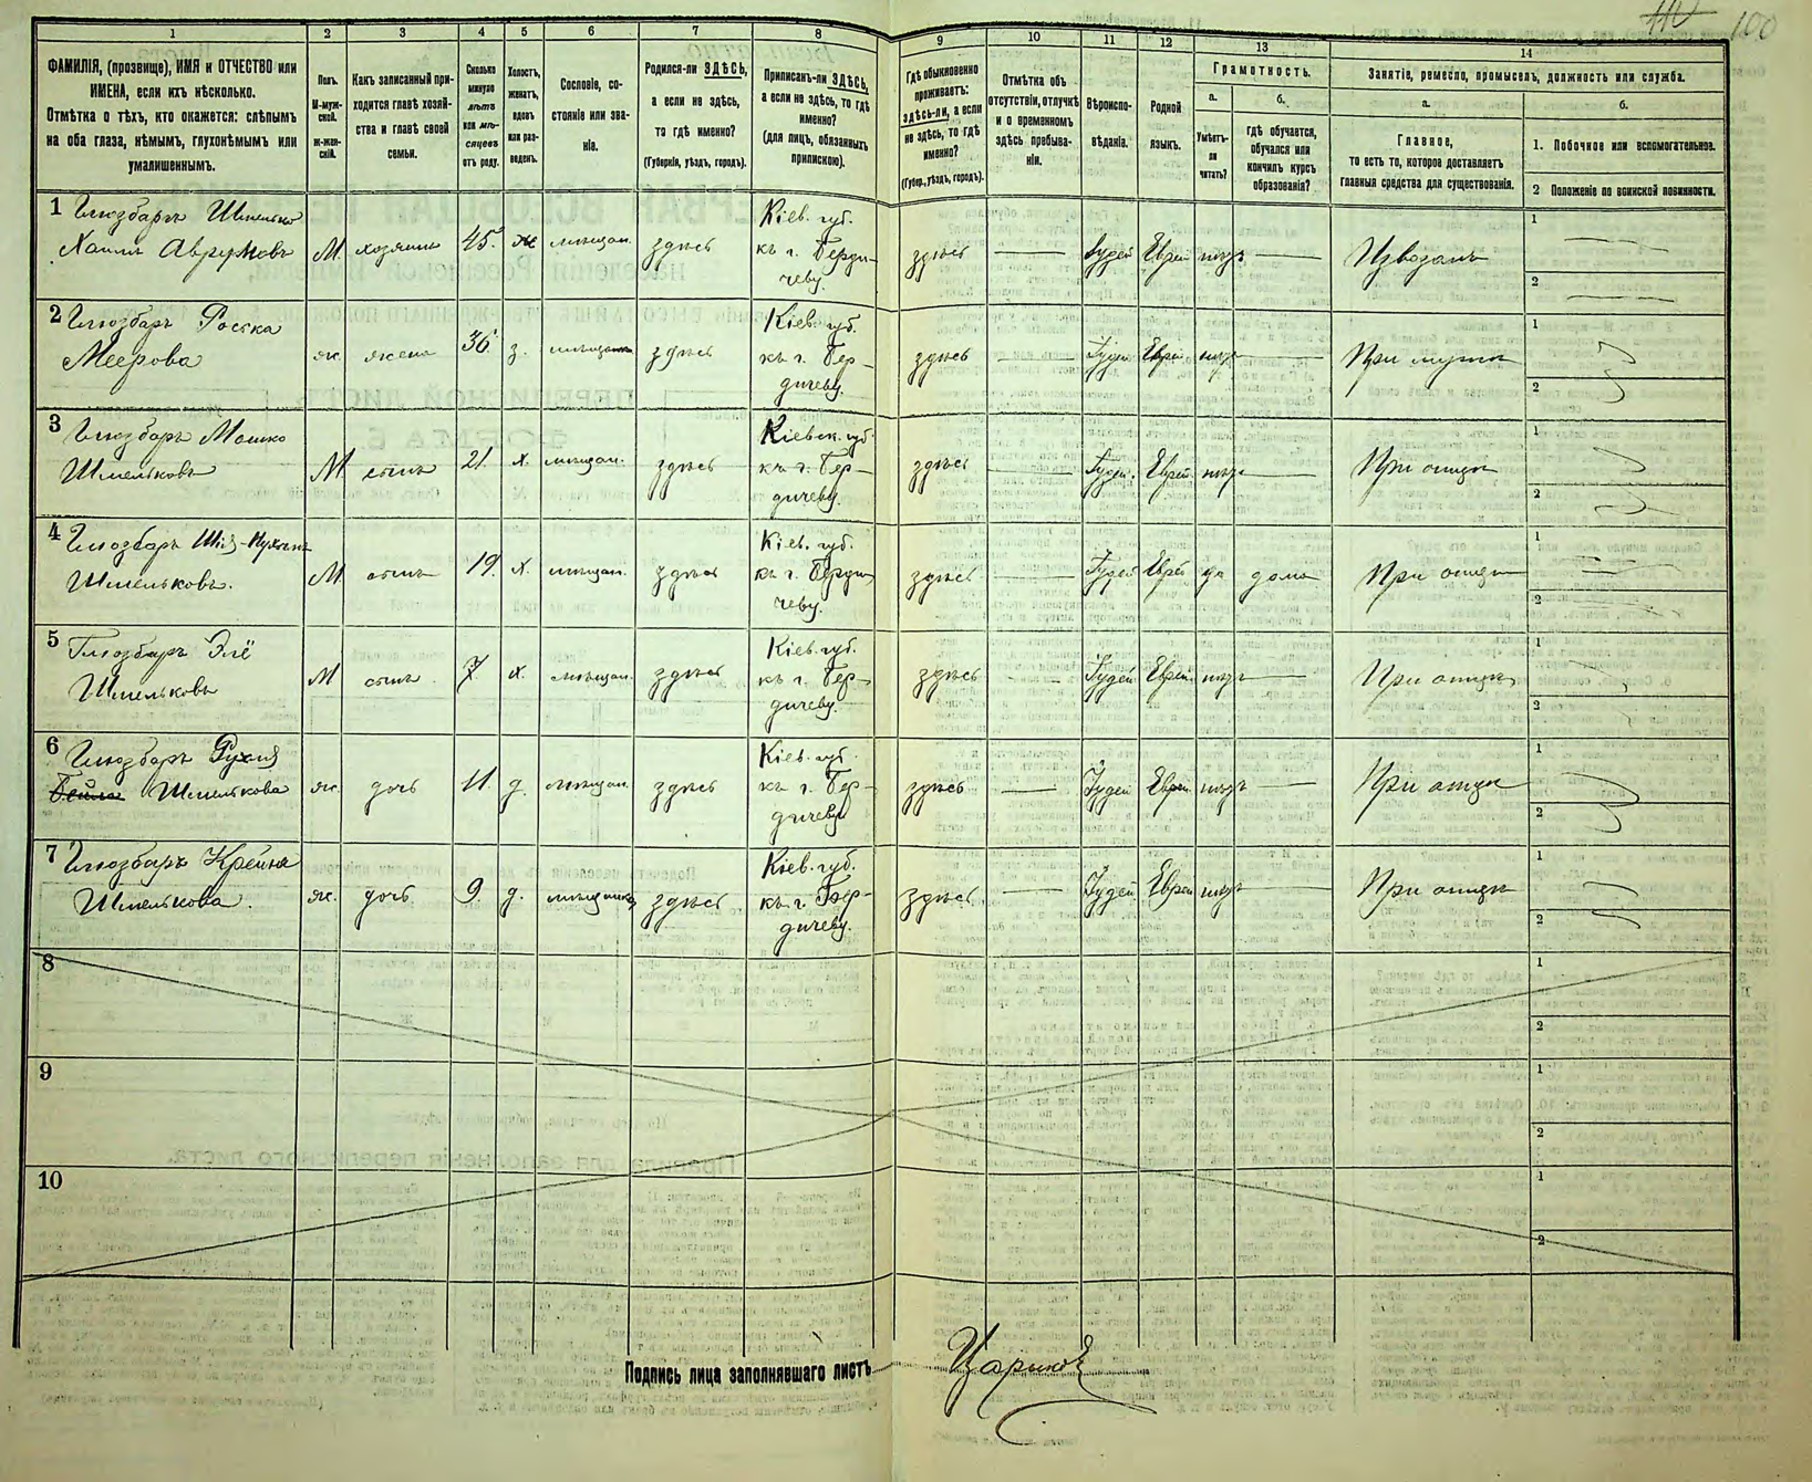 110 100
1 2 3 4 5 6 7 8 9 10 11 12 13 14
ФАМИЛІЯ, (прозвище), ИМЯ и ОТЧЕСТВО или
ИМЕНА, если ихъ нѣсколько.
Отмѣтка о тѣхъ, кто окажется: слѣпымъ
на оба глаза, нѣмымъ, глухонѣмымъ или
умалишеннымъ.
Полъ.
М-муж-
ской.
ж-жен-
скій.
Какъ записанный при-
ходится главѣ хозяй-
ства и главѣ своей
семьи.
Сколько
минуло
лѣтъ
или мѣ-
сяцевъ
отъ роду.
Холостъ,
женатъ,
вдовъ
или раз-
веденъ.
Сословіе, со-
стояніе или зва-
ніе.
Родился-ли ЗДѢСЬ,
а если не здѣсь,
то гдѣ именно?
(Губернія, уѣздъ, городъ).
Приписанъ-ли ЗДѢСЬ,
а если не здѣсь, то гдѣ
именно?
(для лицъ, обязанныхъ
припискою).
Гдѣ обыкновенно
проживаетъ:
здѣсь-ли, а если
не здѣсь, то гдѣ
именно?
(Губер., уѣздъ, городъ).
Отмѣтка объ
отсутствіи, отлучкѣ
и о временномъ
здѣсь пребыва-
ніи.
Вѣроиспо-
вѣданіе.
Родной
языкъ.
Грамотность.
а.
Умѣетъ-
ли
читать?
б.
гдѣ обучается,
обучался или
кончилъ курсъ
образованія?
Занятіе, ремесло, промыселъ, должность или служба.
а.
Главное,
то есть то, которое доставляетъ
главныя средства для существованія.
б.
1. Побочное или вспомогательное.
2 Положеніе по воинской повинности.
1 Глюзбаръ Шмелько
Хаимъ Аврумовъ М. хозяинъ 45. ж мѣщан. здѣсь
Кіев. губ.
къ г. Берди-
чеву.
здѣсь — Іудей Еврей нѣтъ — Извозомъ
1
2
2 Глюзбаръ Роска
Меерова ж. жена 36. з. мѣщанка здѣсь
Кіев. губ.
къ г. Бер-
дичеву.
здѣсь — Іудей Еврей нѣтъ — При мужѣ
1
2
3 Глюзбаръ Мошко
Шмельковъ М сынъ 21. х. мѣщан. здѣсь
Кіевск. губ.
къ г. Бер-
дичеву.
здѣсь — Іудей. Еврей нѣтъ — При отцѣ
1
2
4 Глюзбаръ
Шмельковъ. М. сынъ 19. х. мѣщан. здѣсь
Кіев. губ.
къ г. Берди
чеву.
здѣсь — Іудей Еврей да дома При отцѣ
1
2
5 Глюзбаръ Элё
Шмельковъ М сынъ 7. х. мѣщан. здѣсь
Кіев. губ.
къ г. Бер-
дичеву.
здѣсь — Іудей Еврей. нѣтъ — При отцѣ
1
2
6 Глюзбаръ Рухля
Бейла Шмелькова ж. дочь 11. д. мѣщан. здѣсь
Кіев. губ.
къ г. Бер-
дичеву
здѣсь — Іудей Еврей. нѣтъ — При отцѣ
1
2
7 Глюзбаръ Крейна
Шмелькова. ж. дочь 9. д. мѣщанка здѣсь
Кіев. губ.
къ г. Бер-
дичеву.
здѣсь — Іудей. Еврей нѣтъ — При отцѣ
1
2
8
1
2
9
1
2
10
1
2
Подпись лица заполнявшаго листъ